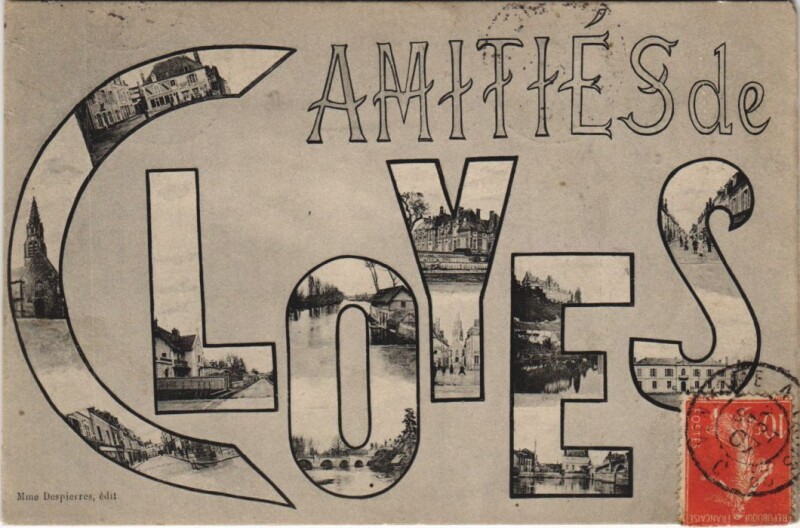 AMITIÉS de
CLOYES
Mme Despierres, édit
10
POSTES
REPUBLIQUE FRANÇAISE